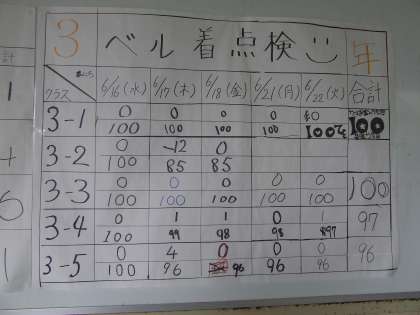 3 ベル着点検 年
クラス 6/16(水) 6/17(木) 6/18(金) 6/21(月) 6/22(火) 合計
3-1 0 0 0 0 0
100 100 100 100 100 100
3-2 0 -12 0
100 85 85
3-3 0 0 0 0 0
100 100 100 100 100 100
3-4 0 1 1 0 1
100 99 98 98 97 97
3-5 0 4 0 0 0
100 96 96 96 96 96
計
1
6
1